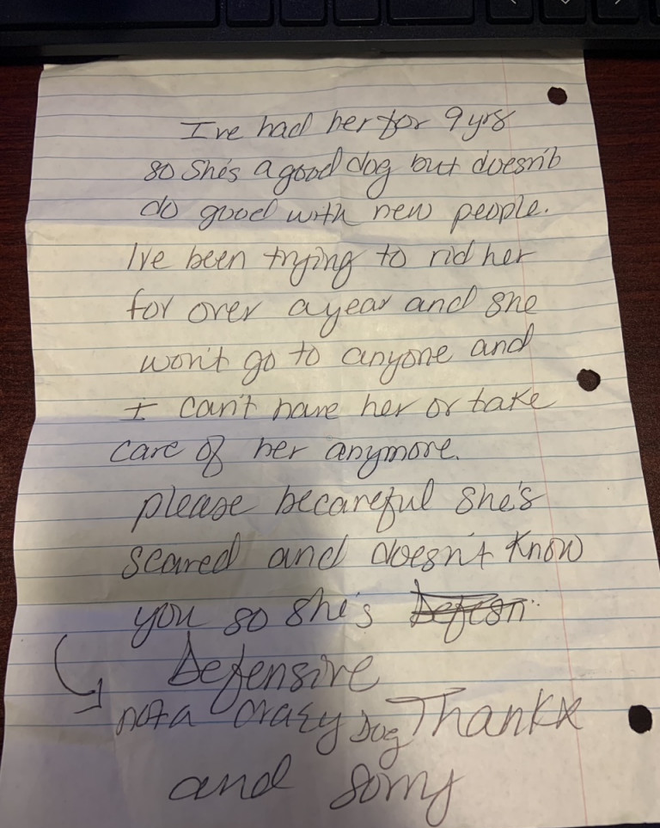 Ive had her for 9 yrs
so she's a good dog but doesn't
do good with new people.
Ive been trying to rid her
for over a year and she
won't go to anyone and
I can't have her or take
care of her anymore.
please becareful she's
scared and doesn't know
you so she's
Defensive
not a crazy Dog Thankx
and sorry